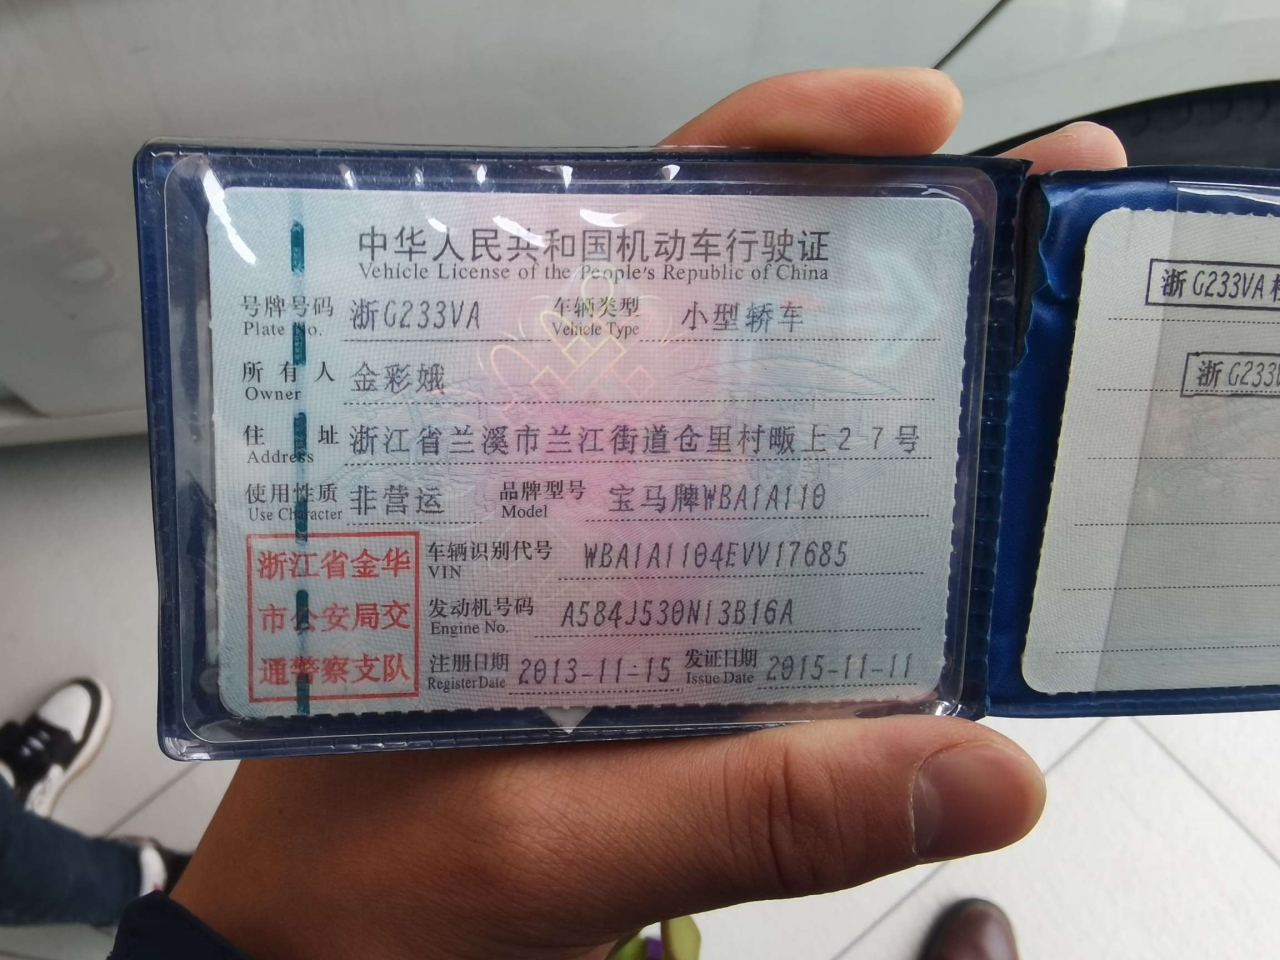 中华人民共和国机动车行驶证
Vehicle License of the People's Republic of China
号牌号码 浙G233VA 车辆类型 小型轿车
Plate No. Vehicle Type
所有人 金彩娥
Owner
住址 浙江省兰溪市兰江街道仓里村畈上27号
Address
使用性质 非营运 品牌型号 宝马牌WBA1A110
Use Character Model
浙江省金华
市公安局交
通警察支队
车辆识别代号 WBA1A1104EVV17685
VIN
发动机号码 A584J530N13B16A
Engine No.
注册日期 2013-11-15 发证日期 2015-11-11
Register Date Issue Date
浙G233VA
浙G233